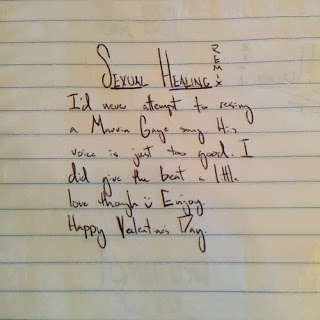 SEXUAL HEALING REMIX
I'd never attempt to resing
a Marvin Gaye song. His
voice is just too good. I
did give the beat a little
love though :) Enjoy.
Happy Valentine's Day.